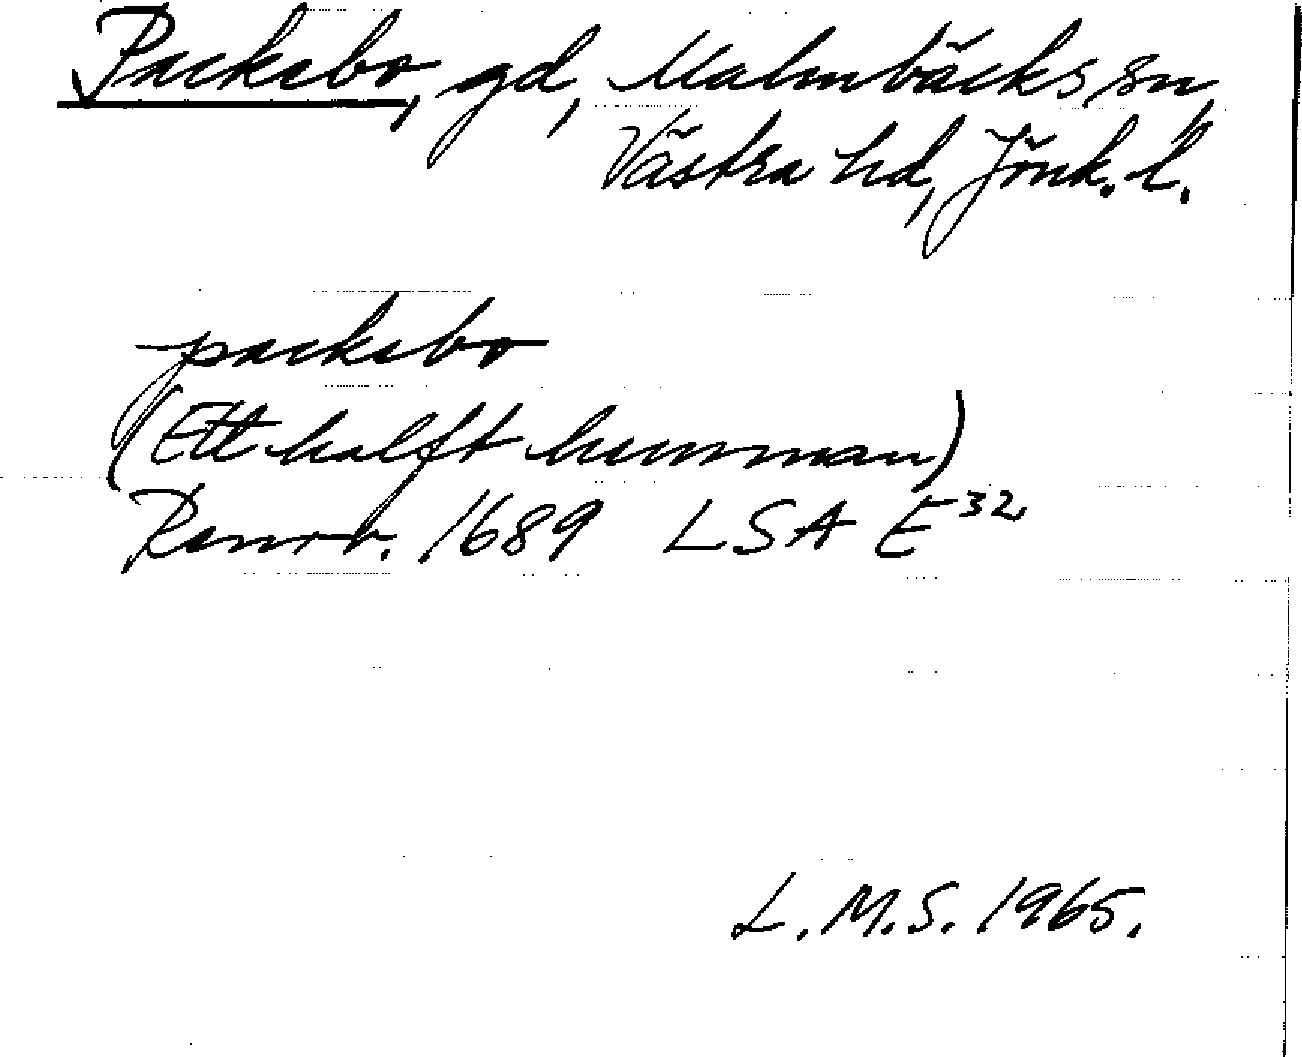 Packebo, gd, Malmbäcks sn,
Västra hd, Jönk. l.
packebo
(Ett halft hemman)
Ransb. 1689 LSA E³²
L.M.S. 1965.